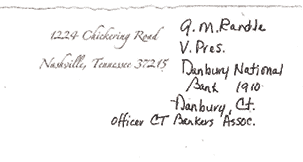 1224 Chickering Road
Nashville, Tennessee 37215
G. M. Randle
V. Pres.
Danbury National
Bank 1910
Danbury, Ct.
Officer CT Bankers Assoc.